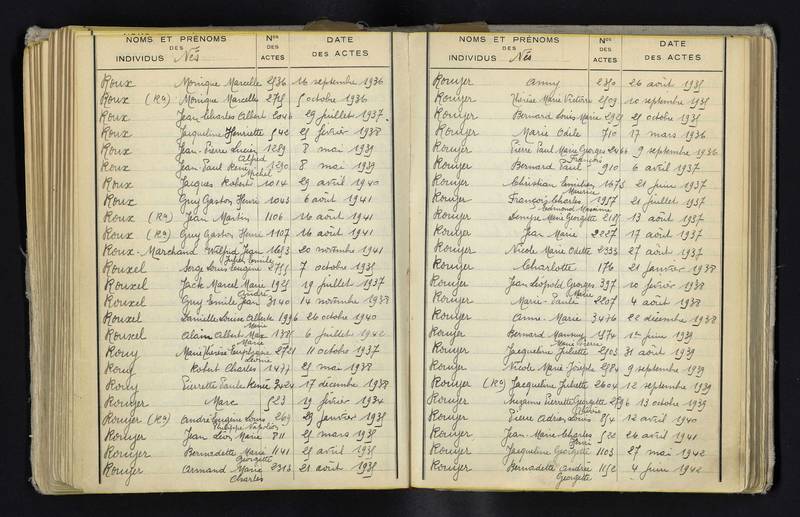 NOMS ET PRÉNOMS
DES
INDIVIDUS Nés
Nos
DES
ACTES
DATE
DES ACTES
Roux Monique Marcelle 2536 16 septembre 1936
Roux (Ra) Monique Marcelle 5 octobre 1936
Roux Jean Charles Albert 2046 29 juillet 1937
Roux Jacqueline Henriette 542 25 février 1938
Roux Jean Pierre Lucien 1289 8 mai 1939
Alfred
Roux Jean Paul René 1290 8 mai 1939
Michel
Roux Jacques Robert 1014 29 avril 1940
Roux Guy Gaston Henri 1043 6 août 1941
Roux (Ra) Jean Martin 1106 16 août 1941
Roux (Ra) Guy Gaston Henri 1107 16 août 1941
Roux-Marchand Wilfrid Jean 1653 20 novembre 1941
Joseph Emile
Rouxel Serge Louis Eugène 7 octobre 1935
Rouxel Jack Marcel Marie 1925 19 juillet 1937
André
Rouxel Guy Emile Jean 3140 14 novembre 1938
Rouxel Danielle Louise Alberte 1996 26 octobre 1940
Marie
Rouxel Alain Albert Max 6 juillet 1942
Marie
Rouy Marie Thérèse 2721 11 octobre 1937
Rouy Robert Charles 1477 25 mai 1938
Rouy Pierrette Paule Renée 3424 17 décembre 1938
Rouyer Marc 523 19 février 1934
Rouyer (Ra) André Eugène Louis 269 23 janvier 1935
Philippe Napoléon
Rouyer Jean Léon Marie 811 25 mars 1935
Rouyer Bernadette Marie 1141 25 avril 1935
Georgette
Rouyer Armand Marie 2313 21 août 1935
Charles
NOMS ET PRÉNOMS
DES
INDIVIDUS Nés
Nos
DES
ACTES
DATE
DES ACTES
Rouyer Anny 2350 26 août 1935
Rouyer Thérèse Marie Victoire 2509 10 septembre 1935
Rouyer Bernard Louis Marie 2925 25 octobre 1935
Rouyer Marie Odile 710 17 mars 1936
Rouyer Pierre Paul Marie Georges 2466 9 septembre 1936
François
Rouyer Bernard Paul 910 6 avril 1937
Rouyer Christian Emilien 1673 21 juin 1937
Maurice
Rouyer François Charles 1957 21 juillet 1937
Edmond
Rouyer Marie Georgette 2185 13 août 1937
Rouyer Jean Marie 2227 17 août 1937
Rouyer Nicole Marie Odette 2333 27 août 1937
Rouyer Charlotte 176 21 janvier 1938
Rouyer Jean Léopold Georges 397 10 février 1938
Marie
Rouyer Marie-Paule 2207 4 août 1938
Rouyer Anne-Marie 3476 22 décembre 1938
Rouyer Bernard 1574 1er juin 1939
Marie Pierre
Rouyer Jacqueline Juliette 2503 31 août 1939
Rouyer Nicole Marie Josèphe 2584 9 septembre 1939
Rouyer (Ra) Jacqueline Juliette 2604 12 septembre 1939
Rouyer Suzanne Pierrette Georgette 2796 13 octobre 1939
Rouyer Pierre Adrien Louis 854 12 avril 1940
Rouyer Jean-Marie Charles 522 26 avril 1941
Henri
Rouyer Jacqueline Georgette 1103 27 mai 1942
Rouyer Bernadette Andrée 1152 4 juin 1942
Georgette